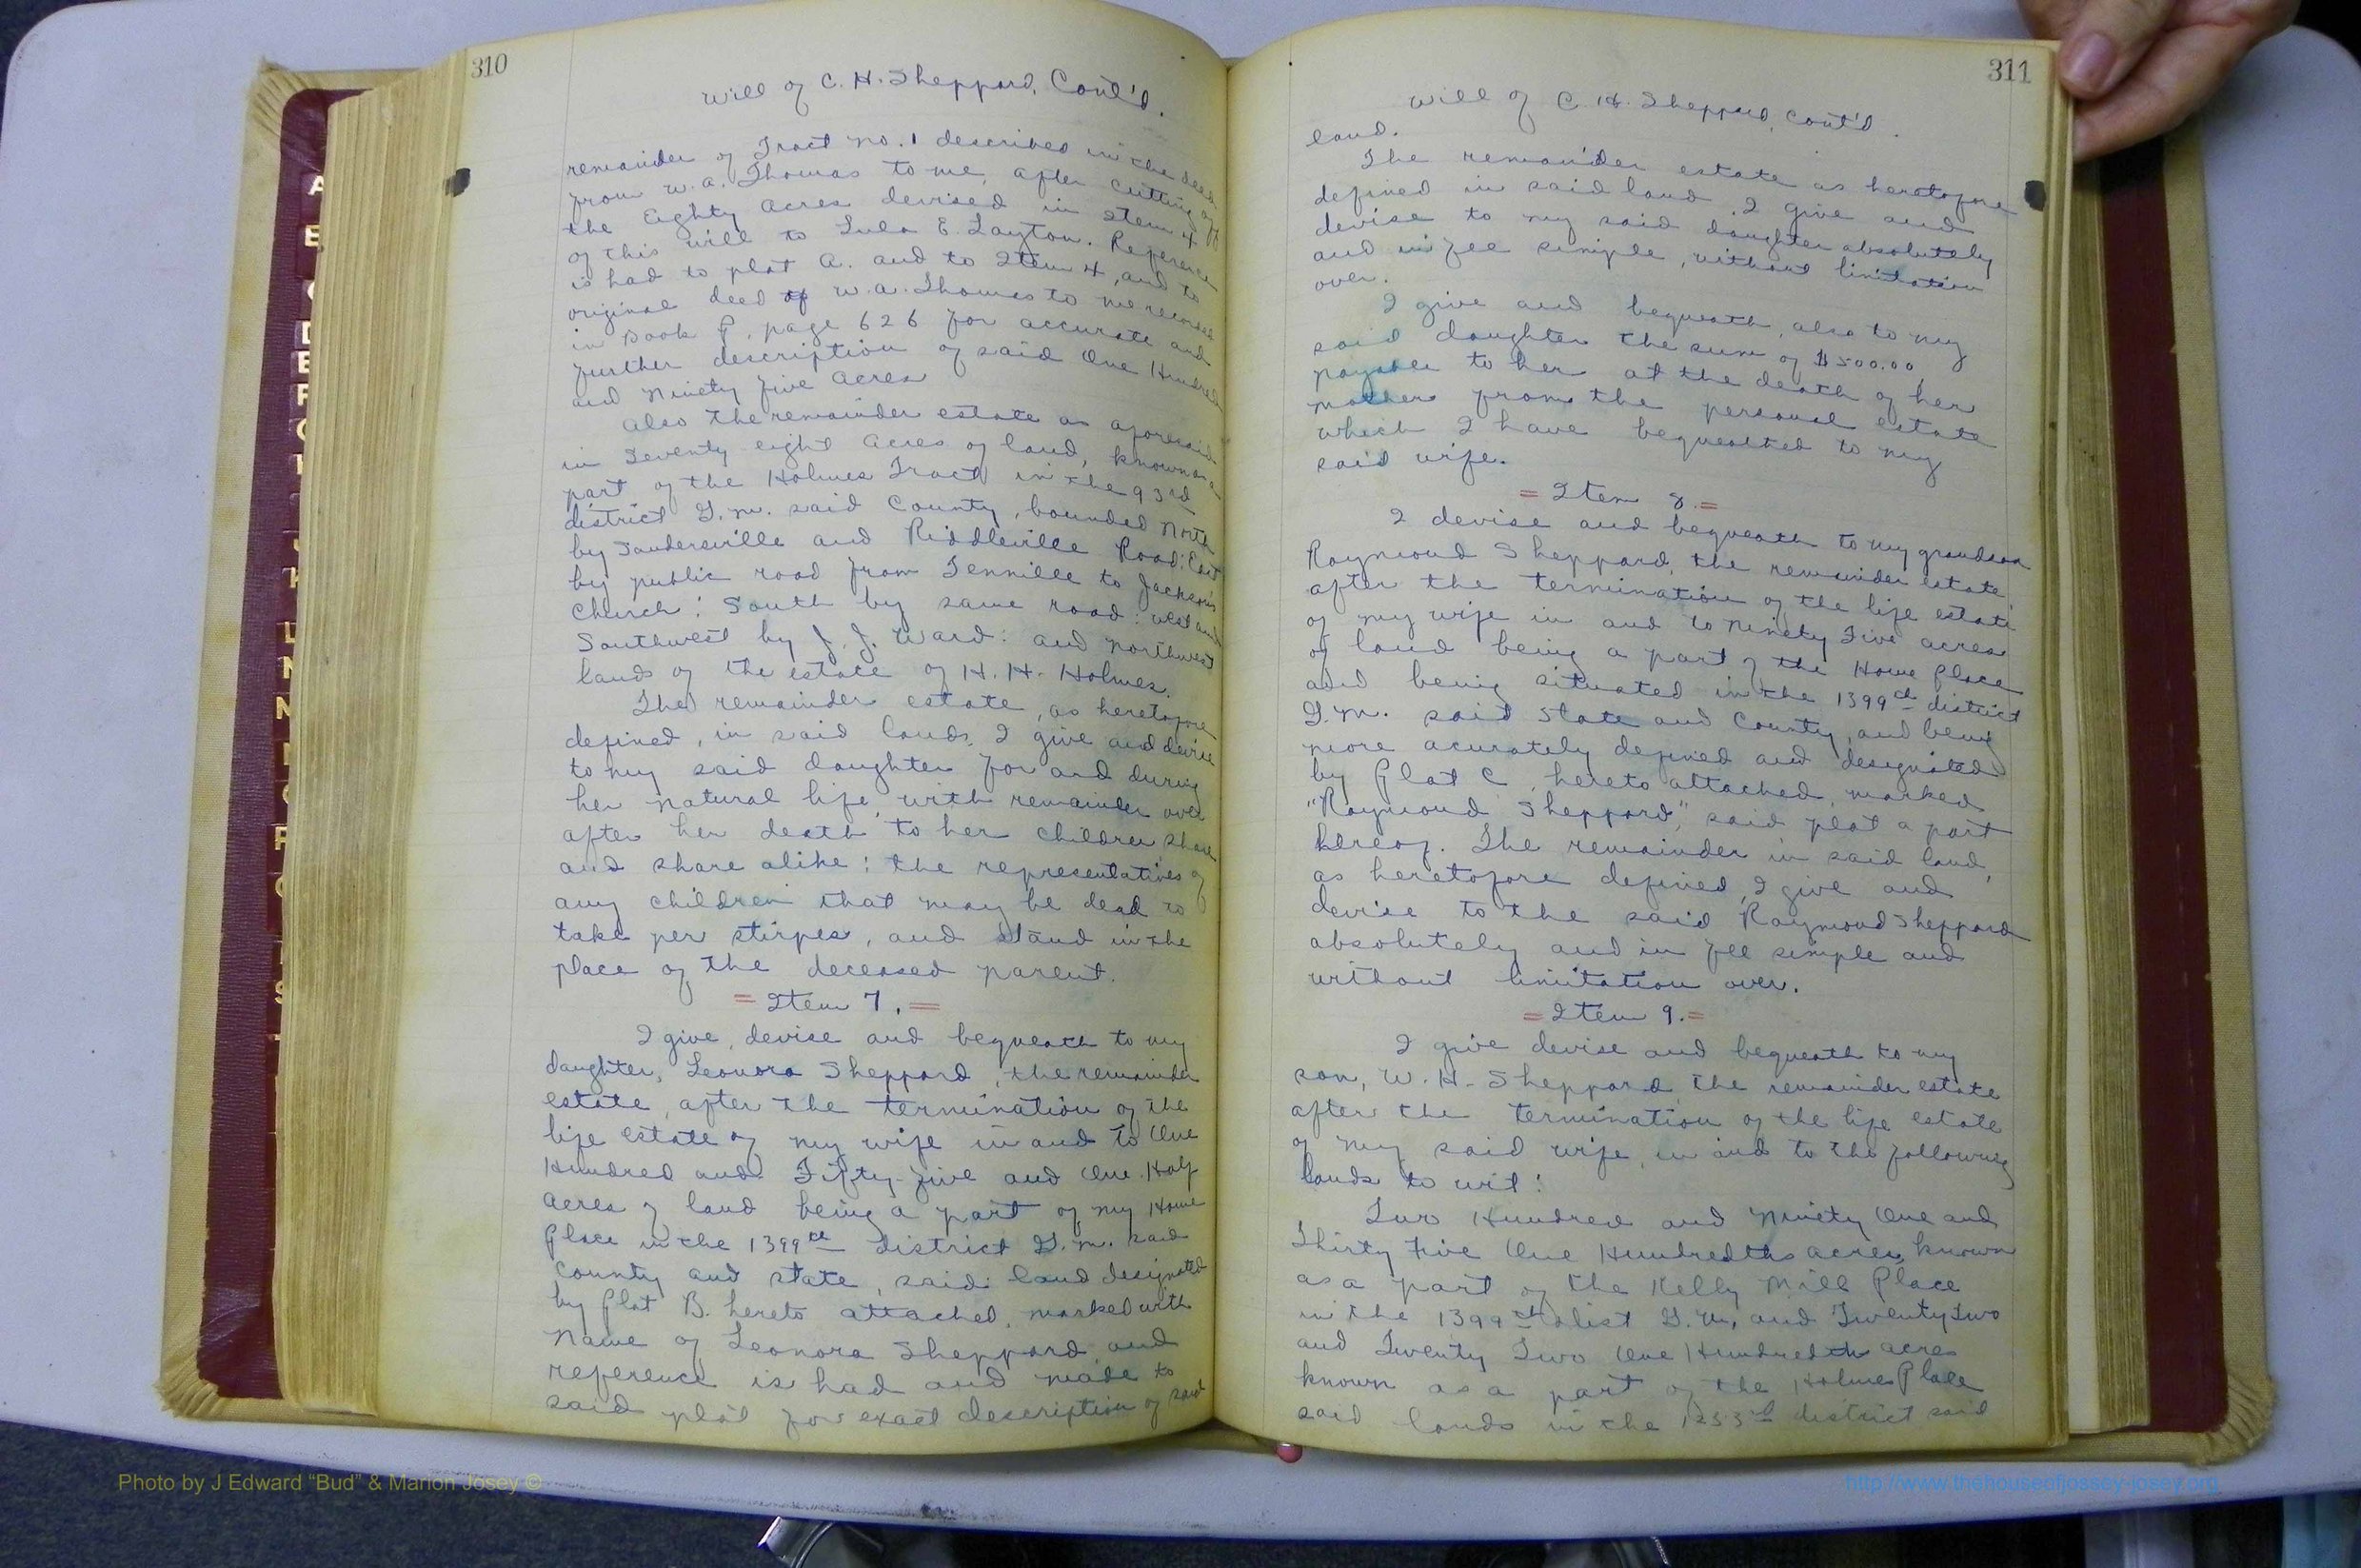 310
Will of C. H. Sheppard, Cont'd.
remainder of Tract No. 1 described in the deed
from W. A. Thomas to me, after cutting off
the Eighty Acres devised in Item 4
of this will to Lula E. Layton. Reference
is had to plat A. and to Item 4, and to
original deed of W. A. Thomas to me recorded
in Book P. page 626 for accurate and
further description of said One Hundred
and Ninety five Acres
Also the remainder estate as aforesaid
in Seventy eight Acres of land, known as a
part of the Holmes Tract in the 93rd
district G. M. said County, bounded North
by Sandersville and Riddleville Road: East
by public road from Tennille to Jackson's
Church: South by same road: west and
Southwest by J. J. Ward: and Northwest
lands of the estate of H. H. Holmes.
The remainder estate, as heretofore
defined, in said lands, I give and devise
to my said daughter for and during
her natural life, with remainder over
after her death to her children share
and share alike: the representatives of
any children that may be dead to
take per stirpes, and stand in the
place of the deceased parent.
= Item 7. =
I give, devise and bequeath to my
daughter, Leonora Sheppard, the remainder
estate, after the termination of the
life estate of my wife in and to One
Hundred and Fifty-five and One-Half
acres of land being a part of my Home
Place in the 1399th district G. M. said
County and state, said land designated
by Plat B. hereto attached, marked with
Name of Leonora Sheppard and
reference is had and made to
said plat for exact description of said
311
Will of C. H. Sheppard, Cont'd.
land.
The remainder estate as heretofore
defined in said land I give and
devise to my said daughter absolutely
and in fee simple, without limitation
over.
I give and bequeath, also to my
said daughter the sum of $500.00,
payable to her at the death of her
mother from the personal estate
which I have bequeathed to my
said wife.
= Item 8. =
I devise and bequeath to my grandson
Raymond Sheppard, the remainder estate,
after the termination of the life estate
of my wife in and to Ninety Five acres
of land being a part of the Home Place
and being situated in the 1399th district
G. M. said State and County, and being
more acurately defined and designated
by Plat C, hereto attached, marked
"Raymond Sheppard", said plat a part
hereof. The remainder in said land,
as heretofore defined, I give and
devise to the said Raymond Sheppard
absolutely and in fee simple and
without limitation over.
= Item 9. =
I give devise and bequeath to my
son, W. H. Sheppard the remainder estate
after the termination of the life estate
of my said wife, in and to the following
lands to wit:
Two Hundred and Ninety One and
Thirty Five One Hundredths acres, known
as a part of the Kelly Mill Place
in the 1399th dist G. M. and Twenty two
and Twenty Two One Hundredth acres
known as a part of the Holmes Place
said lands in the 1253rd district said
Photo by J Edward “Bud” & Marion Josey ©
http://www.thehouseofjossey-josey.org